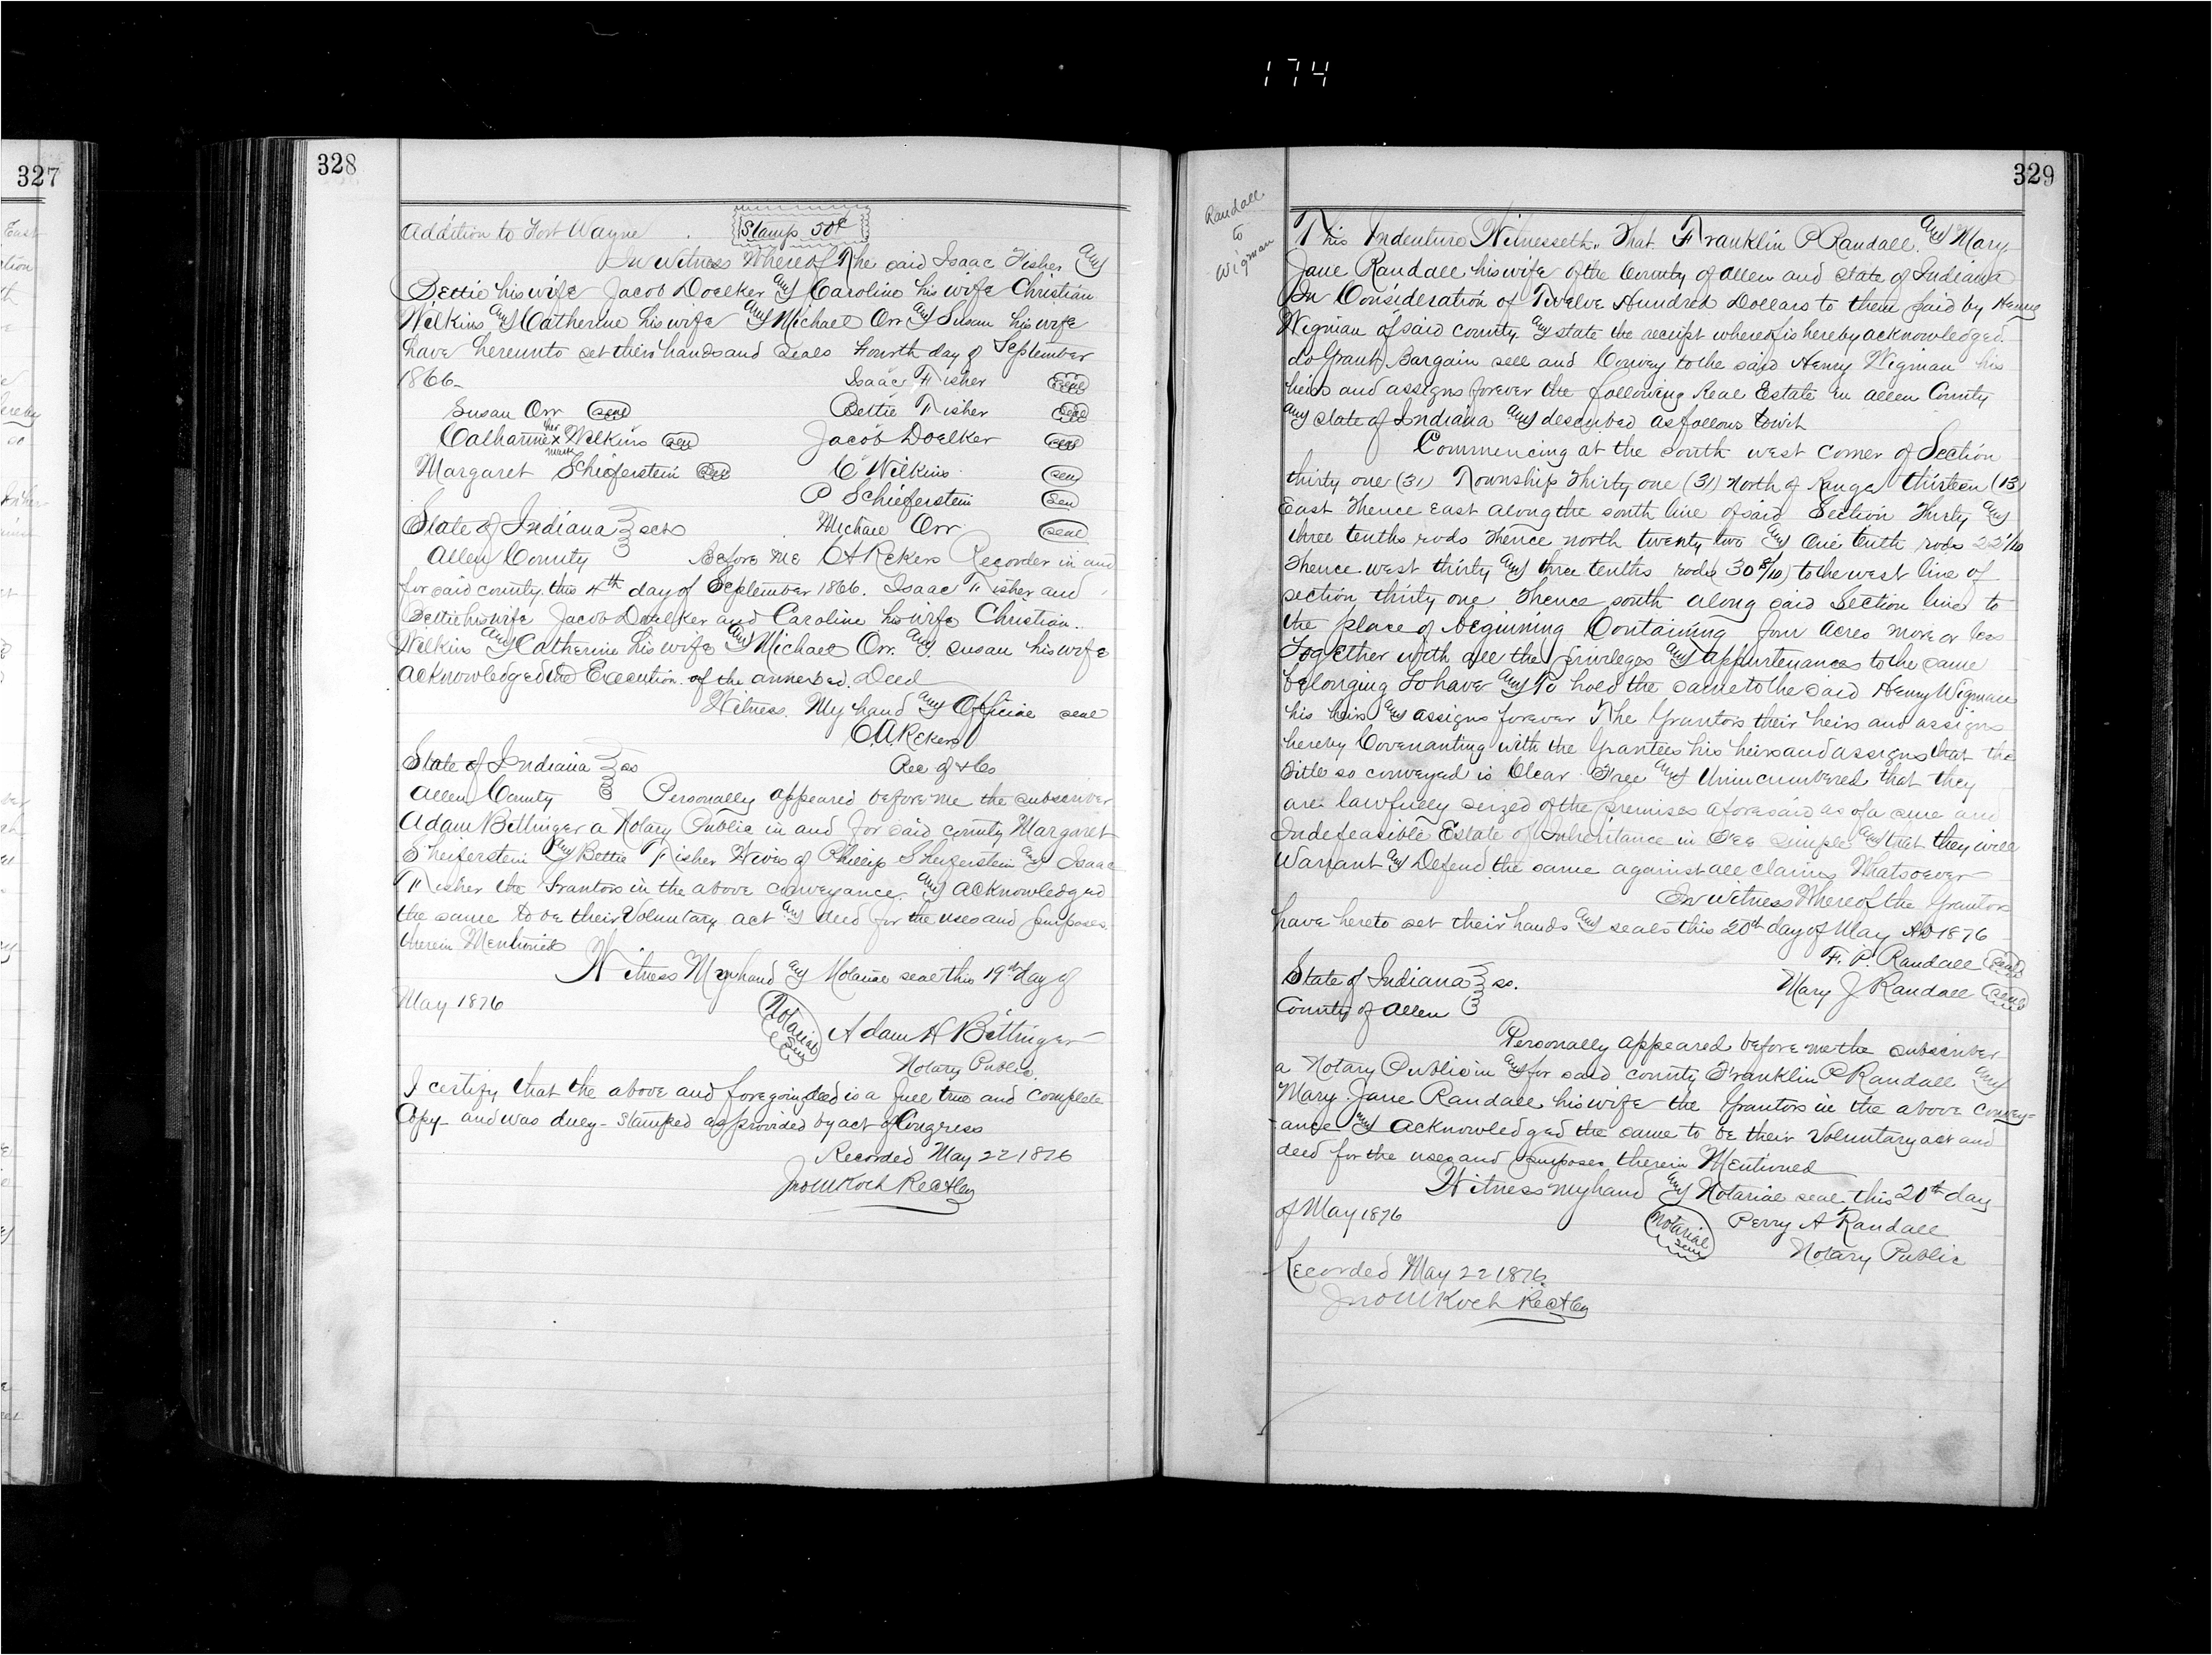 174
327
328
Addition to Fort Wayne . Stamp 50¢
In Witness Whereof The said Isaac Fisher and
Bettie his wife Jacob Doelker and Caroline his wife Christian
Wilkins and Catherine his wife and Michael Orr and Susan his wife
have hereunto set their hands and seals Fourth day of September
1866 Isaac Fisher Seal
Susan Orr seal Bettie Fisher seal
Catharine her x mark Wilkins seal Jacob Doelker seal
Margaret Schieferstein seal C Wilkins seal
P Schieferstein seal
State of Indiana } scts Michael Orr seal
Allen County Before me C A Rekers Recorder in and
for said county this 4th day of September 1866. Isaac Fisher and
Bettie his wife Jacob Doelker and Caroline his wife Christian
Wilkins and Catherine his wife and Michael Orr and Susan his wife
acknowledged the Execution of the annexed Deed
Witness My hand and Official seal
C.A. Rekers
State of Indiana } ss Rec of A Co
Allen County Personally appeared before me the subscriber
Adam Bittinger a Notary Public in and for said county Margaret
Sheiferstein and Bettie Fisher Wives of Phillip Sheiferstein and Isaac
Fisher the Grantors in the above conveyance and acknowledged
the same to be their Voluntary act and deed for the uses and purposes
therein Mentioned
Witness My hand and Notarial seal this 19th day of
May 1876
Notarial Seal Adam H Bittinger
Notary Public
I certify that the above and foregoing deed is a full true and complete
Copy and was duly stamped as provided by act of Congress
Recorded May 22 1876
Jno M Koch R
329
Randall
to
Wigman
This Indenture Witnesseth. That Franklin P Randall and Mary
Jane Randall his wife of the County of Allen and State of Indiana
In Consideration of Twelve Hundred Dollars to them paid by Henry
Wigman of said county and state the receipt whereof is hereby acknowledged
do Grant Bargain sell and Convey to the said Henry Wigman his
heirs and assigns forever the following Real Estate in Allen County
and state of Indiana and described as follows towit
Commencing at the south west corner of Section
thirty one (31) Township Thirty one (31) North of Range thirteen (13)
East Thence East along the south line of said Section Thirty and
three tenths rods Thence north twenty two and One tenth rods 22 1/10
Thence west thirty and three tenths rods (30 3/10) to the west line of
section thirty one Thence south along said Section line to
the place of beginning Containing four acres more or less
Together with all the privileges and appurtenances to the same
belonging To have and To hold the same to the said Henry Wigman
his heirs and assigns forever The Grantors their heirs and assigns
hereby Covenanting with the Grantees his heirs and assigns that the
Title so conveyed is Clear Free and Unincumbered that they
are lawfully seized of the premises aforesaid as of a sure and
Indefeasible Estate of Inheritance in Fee simple and that they will
Warrant and Defend the same against all claims Whatsoever
In Witness Whereof the Grantors
have hereto set their hands and seals this 20th day of May AD 1876
F. P. Randall seal
State of Indiana } ss. Mary J Randall seal
County of Allen
Personally appeared before me the subscriber
a Notary Public in and for said county Franklin P Randall and
Mary Jane Randall his wife the Grantors in the above convey=
-ance and acknowledged the same to be their Voluntary act and
deed for the uses and purposes therein Mentioned
Witness my hand and Notarial seal this 20th day
of May 1876 Notarial seal Perry A Randall
Notary Public
Recorded May 22 1876
Jno M Koch R